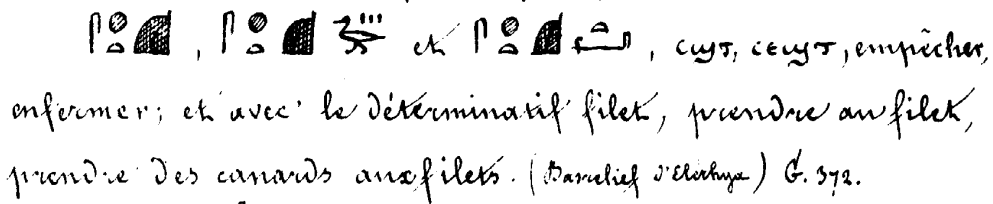 , et , ⲥϣⲧ, ⲥⲉϣⲧ, empêcher,
enfermer; et avec le déterminatif filet, prendre au filet,
prendre des canards aux filets. (Basrelief d'Elethya) G. 372.